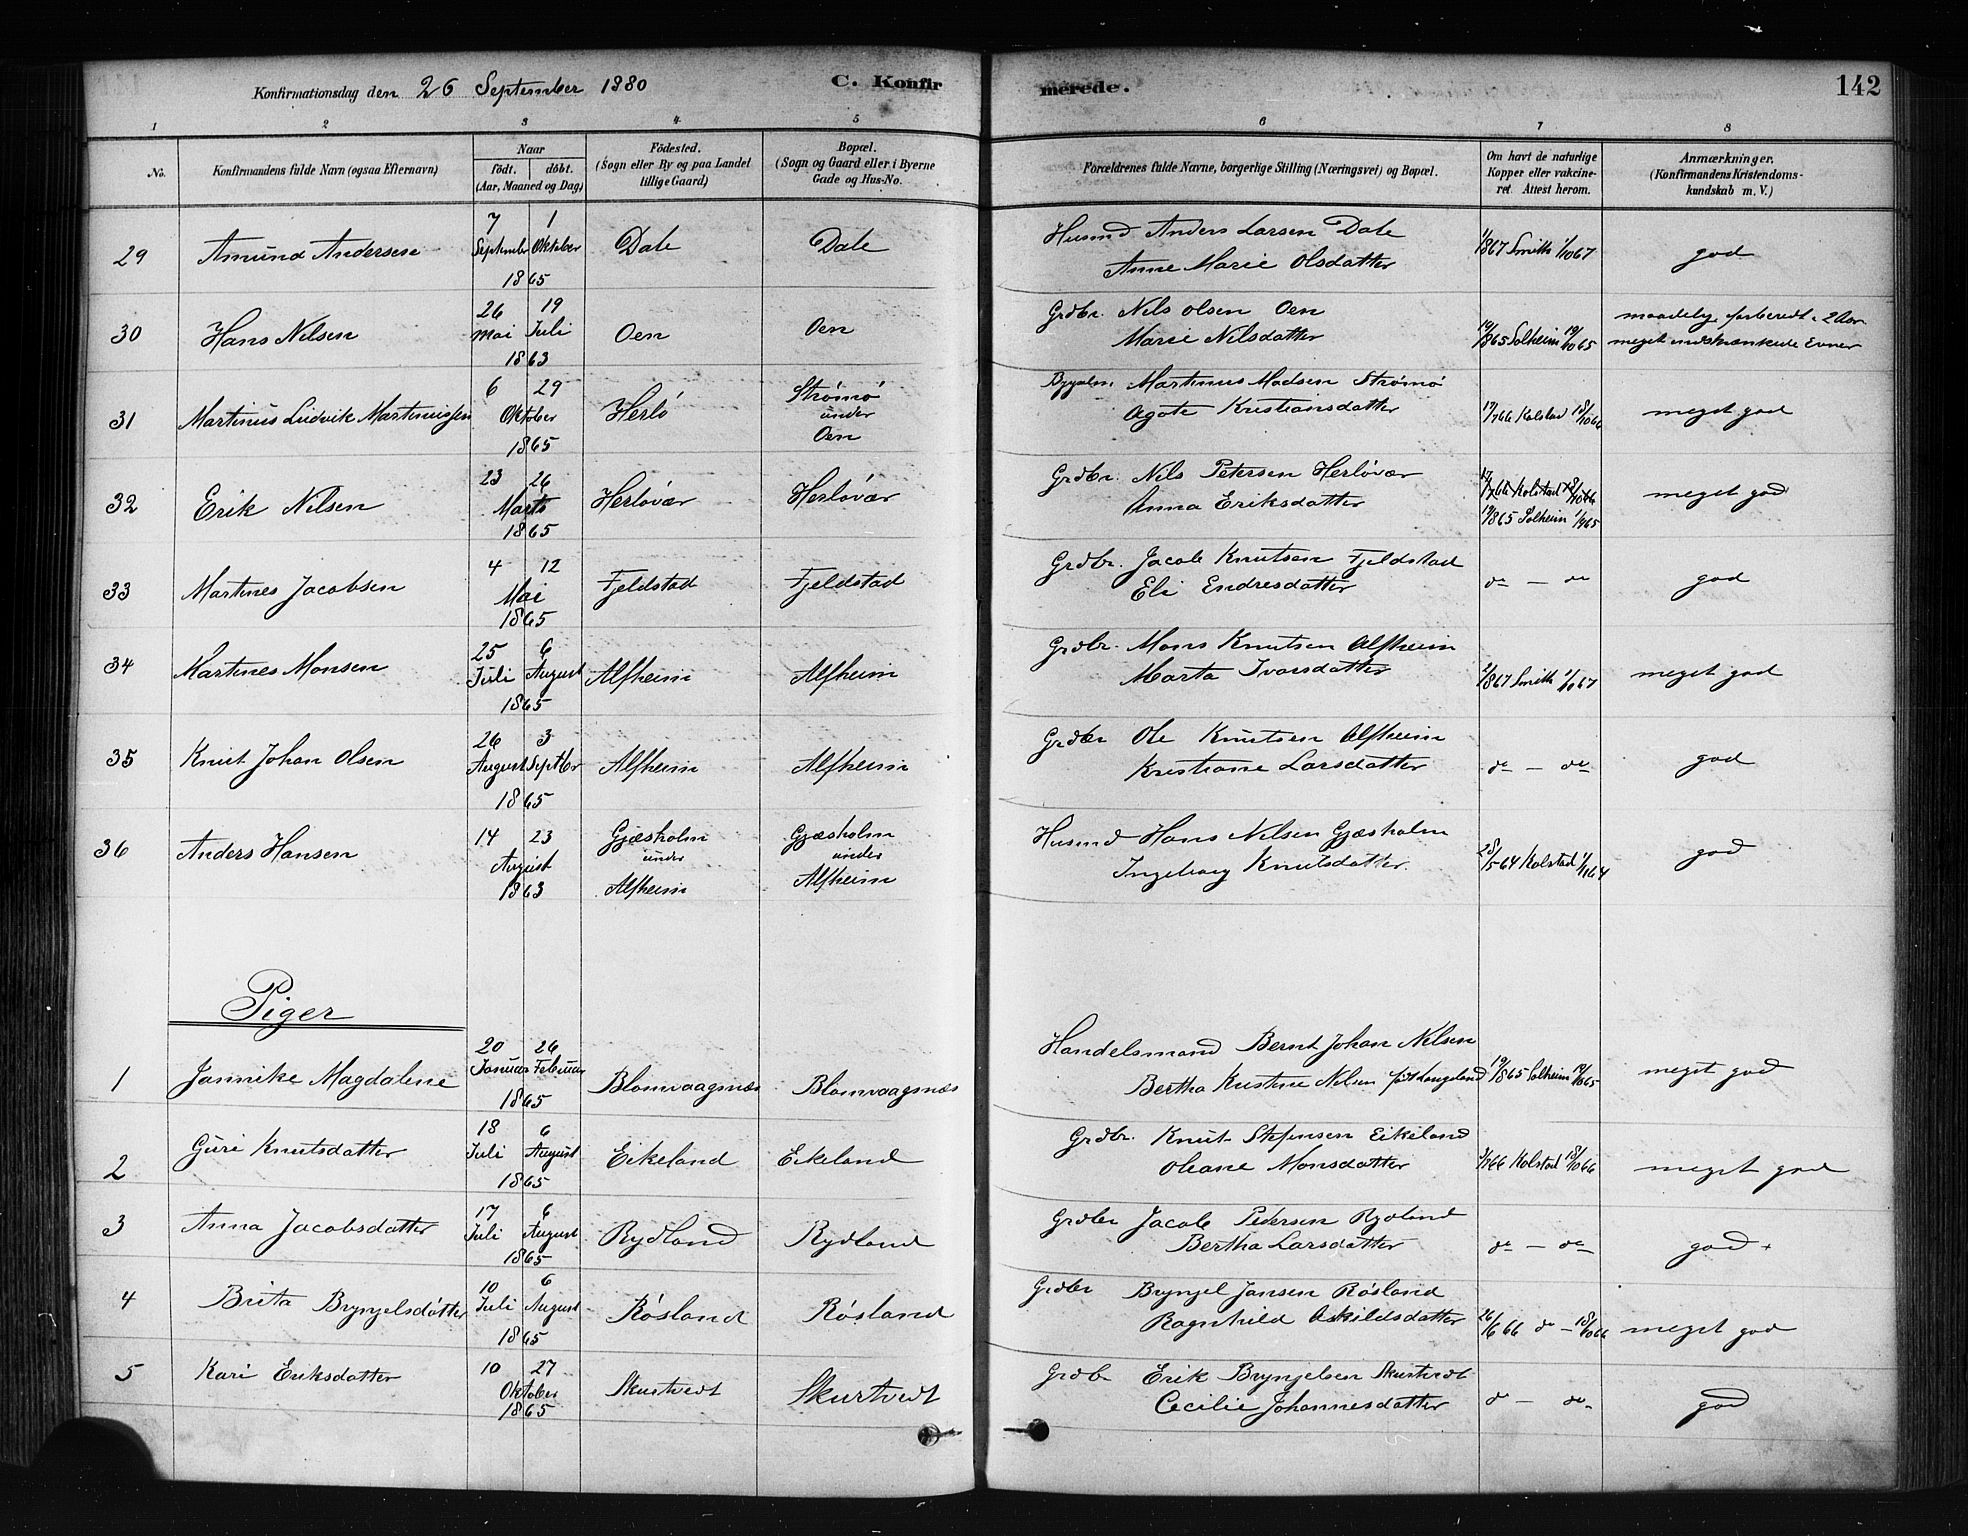 Konfirmationsdag den 26 September 1880 C. Konfirmerede. 142
1 2 3 4. 5 6 7 8
No. Konfirmandens fulde Navn (ogsaa Efternavn) Naar født. døbt. (Aar, Maaned og Dag) Fødested. (Sogn eller By og paa Landet tillige Gaard) Bopæl. (Sogn og Gaard eller i Byerne Gade og Hus-No. Forældrenes fulde Navne, borgerlige Stilling (Næringsvei) og Bopæl. Om havt de naturlige Kopper eller vakcineret. Attest herom. Anmærkninger. (Konfirmandens Kristendomskundskab m. V.)
29 Amund Andersen 7 September 1 Oktober 1865 Dale Dale Husmd Anders Larsen Dale
Anne Marie Olsdatter 1/867 Smith 1/1067 god
30 Hans Nilsen 26 Mai 19 Juli 1863 Oen Oen Grdbr. Nils Olsen Oen
Marie Nilsdatter 19/865 Solheim 19/1065 maadelig forberedt i 2 Aar
meget indskrænkede Evner
31 Martinus Ludvik Martinussen 6 29 Oktober 1865 Herlø Strømø
under
Oen Martinus Madsen Strømø
Agate Kristiansdatter 17/766 Kolstad 18/1066 meget god
32 Erik Nilsen 23 26 Marts 1865 Herløvær Herløvær Grdbr. Nils Petersen Herløvær
Anna Eriksdatter 17/766 Kolstad 18/1066
19/865 Solheim 1/965 meget god
33 Martines Jacobsen 4 12 Mai 1865 Fjeldstad Fjeldstad Grdbr. Jacob Knutsen Fjeldstad
Eli Endresdatter do — do god
34 Martines Monsen 25 Juli 6 August 1865 Alfheim Alfheim Grdbr. Mons Knutsen Alfheim
Marta Ivarsdatter 2/867 Smith 1/1067 meget god
35 Knut Johan Olsen 26 August 3 Septbr 1865 Alfheim Alfheim Grdbr Ole Knutsen Alfheim
Kristiane Larsdatter do — do god
36 Anders Hansen 14 23 August 1863 Gjæsholm
under
Alfheim Gjæsholm
under
Alfheim Husmd Hans Nilsen Gjæsholm
Ingeborg Knutsdatter. 28/564 Kolstad god
Piger
1 Jannike Magdalene 20 Januar 26 Februar 1865 Blomvaagsnæs Blomvaagsnæs Handelsmand Bernt Johan Nilsen
Bertha Kristine Nilsen født Langeland 19/865 Solheim 19/1065 meget god
2 Guri Knutsdatter 18 Juli 6 August 1865 Eikeland Eikeland Grdbr. Knut Stefensen Eikeland
Oleane Monsdatter Kolstad 18/1066 meget god
3 Anna Jacobsdatter 17 Juli 6 August 1865 Rydland Rydland Grdbr Jacob Pedersen Rydland
Bertha Larsdatter do — do god
4 Brita Brynjelsdatter 10 Juli 6 August 1865 Røsland Røsland Grdbr Brynjel Jansen Røsland
Ragnhild Askildsdatter 26/666 do — 18/1066 meget god
5 Kari Eriksdatter 10 27 Oktober 1865 Skurtvedt Skurtvedt Grdb. Erik Brynjelsen Skurtvedt
Cecilie Johannesdatter do — do god